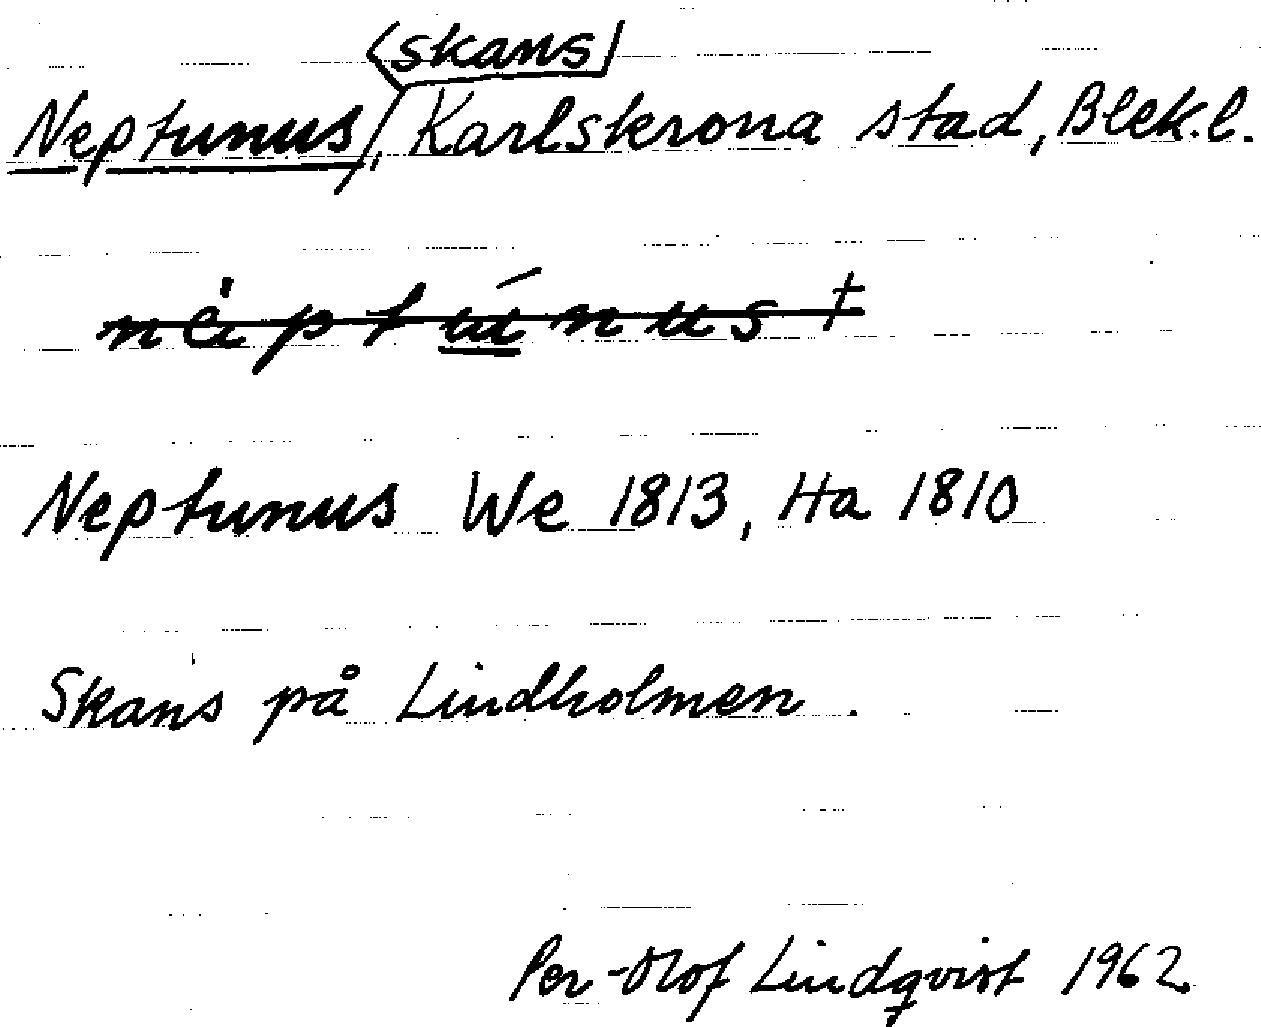 skans
Neptunus, Karlskrona stad, Blek.l.
Neptunus We 1813, Ha 1810
Skans på Lindholmen.
Per-Olof Lindqvist 1962